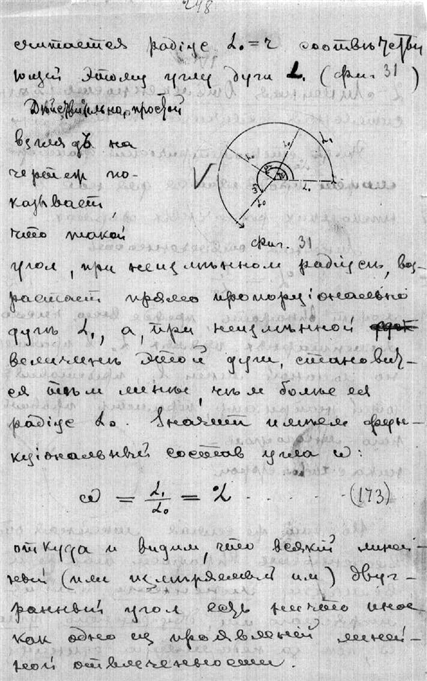 248
считается радіус L₀ = r соотвѣтству
ющій этому углу дуги L. (фиг. 31)
Дѣйствительно, простой
взглядъ на
чертеж по-
казывает,
что такой
фиг. 31
угол, при неизмѣнном радіусѣ, воз-
растает прямо пропорціонально
дугѣ L₁, а, при неизмѣнной
величинѣ этой дуги, становит-
ся тѣм менѣе, чѣм болѣе ея
радіус L₀. Значит имѣем фун-
кціональный состав угла ω:
ω = L₁/L₀ = L ..... (173)
откуда и видим, что всякій линей-
ный (или измѣряемый им) двугр-
ранный угол есть ничто иное
как одно из проявленій линей-
ной отвлеченности.